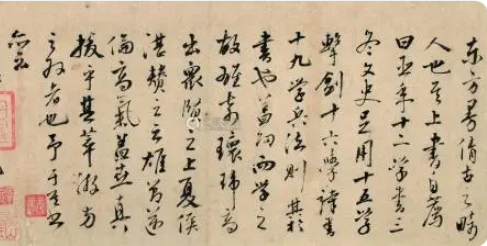 東方曼倩古之畸
人也其上書自薦
曰臣年十二學書三
冬文史足用十五學
擊劍十六學詩書
十九學兵法則其於
書也蓋幼而學之
故雄奇瓌瑋高
出衆賢之上夏侯
湛贊之云雄節邁
倫高氣蓋世真
拔乎其萃遊方
之外者也予於其書
亦云